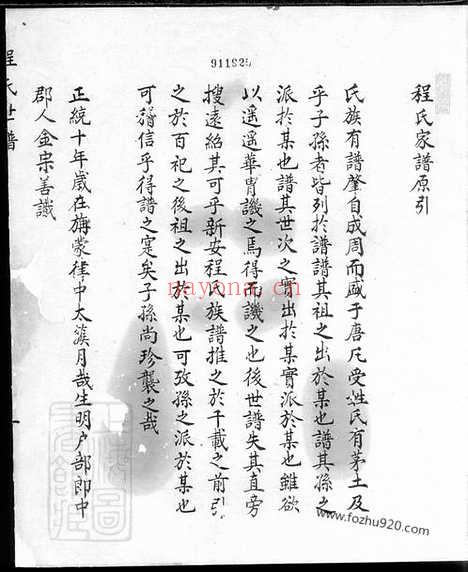 911925
程氏家譜原引
氏族有譜肇自成周而盛于唐凡受姓氏有茅土及
乎子孫者皆列於譜譜其祖之出於某也譜其孫之
派於某也譜其世次之實出於某實派於某也雖欲
以遥遥華胄譏之焉得而譏之也後世譜失其直旁
搜遠紹其可乎新安程氏族譜推之於千載之前引
之於百祀之後祖之出於某也可攷孫之派於某也
可稽信乎得譜之寔矣子孫尚珍襲之哉
正統十年歲在旃蒙律中太簇月哉生明戶部郎中
郡人金宗善識
程氏世譜
一
nayona.cn
www.fozhu920.com